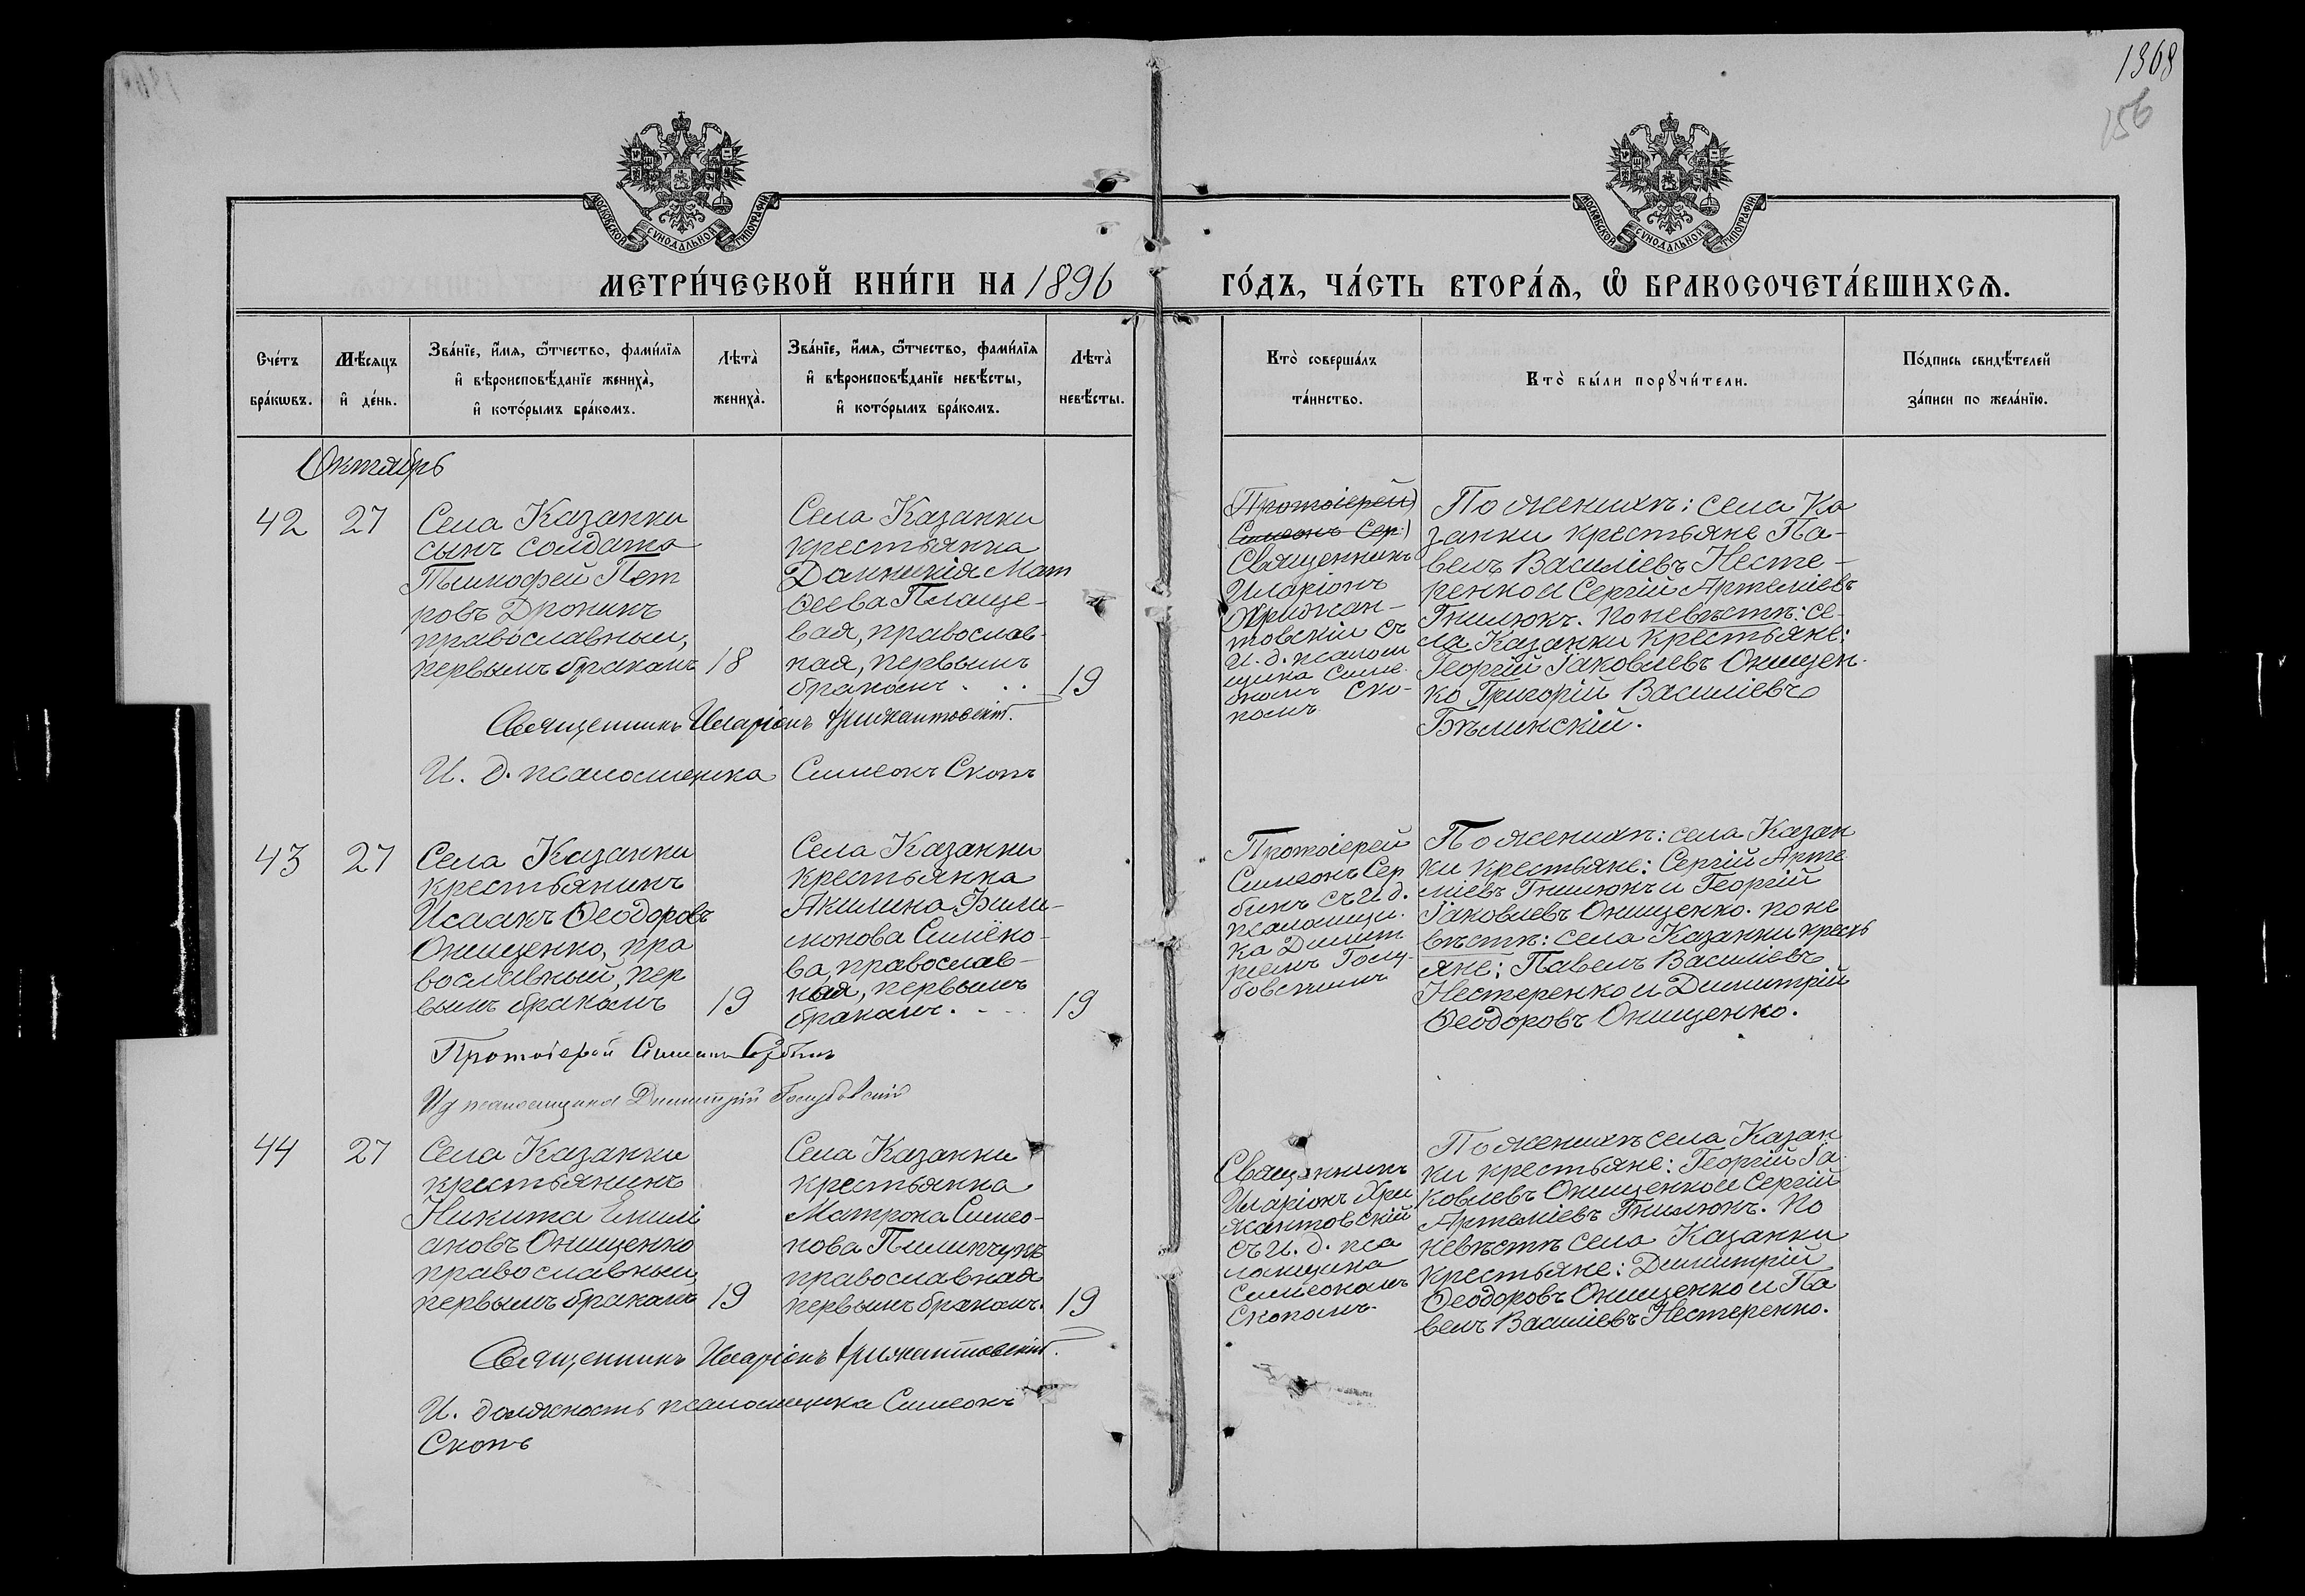 1368
156
МОСКОВСКОЙ СѴНОДАЛЬНОЙ ТИПОГРАФІИ
МОСКОВСКОЙ СѴНОДАЛЬНОЙ ТИПОГРАФІИ
МЕТРИ́ЧЕСКОЙ КНИ́ГИ НА 1896
ГО́ДЪ, ЧА́СТЬ ВТОРА́Ѧ, Ѽ БРАКОСОЧЕТА́ВШИХСѦ.
Сче́тъ бра́кѡвъ.
Мѣ́сяцъ и҆ де́нь.
Зва́нїе, и҆́мя, ѻ҆́тчество, фами́лїя
и҆ вѣроисповѣ́данїе жениха̀,
и҆ кото́рымъ бра́комъ.
Лѣта̀ жениха̀.
Зва́нїе, и҆́мя, ѻ҆́тчество, фами́лїя
и҆ вѣроисповѣ́данїе невѣ́сты,
и҆ кото́рымъ бра́комъ.
Лѣта̀ невѣ́сты.
Кто̀ соверша́лъ
та́инство.
Кто̀ бы́ли порꙋчи́тели.
По́дпись свидѣ́телей
за́писи по жела́нїю.
Октябрь
42
27
Села Казанки
сынъ солдата
Тимофей Пет
ровъ Дронинъ
православный,
первымъ бракомъ
18
Села Казанки
крестьянка
Домникія Мат
ѳеева Плаще-
вая, православ-
ная, первымъ
бракомъ . . .
19
Протоіерей
Симеонъ Сер
Священникъ
Иларіонъ
Хрижан-
товскій съ
И. д. псалом
щика Симе
ономъ Ско-
помъ
По женихѣ: села Ка
занки крестьяне Па-
велъ Василіевъ Несте-
ренко и Сергій Артеміевъ
Гнилюкъ. По невѣстѣ: се-
ла Казанки крестьяне:
Георгій Іаковлевъ Онищен-
ко Григорій Василіевъ
Бѣлинскій.
Священникъ Иларіонъ Хрижантовскій.
И. д. псаломщика Симеонъ Скопъ
43
27
Села Казанки
крестьянинъ
Исаакъ Ѳеодоровъ
Онищенко, пра
вославный, пер
вымъ бракомъ
19
Села Казанки
крестьянка
Акилина Фили-
монова Симёно-
ва, православ-
ная, первымъ
бракомъ. - - .
19
Протоіерей
Симеонъ Сер
бинъ съ И д.
псаломщи
ка Димит
ріемъ Голу-
бовскимъ
По женихѣ: села Казан
ки крестьяне: Сергій Арте
міевъ Гнилюкъ и Георгій
Іаковлевъ Онищенко. по не
вѣстѣ: села Казанки кресть
яне: Павелъ Василіевъ
Нестеренко и Димитрій
Ѳеодоровъ Онищенко.
Протоіерей Симеонъ Сербинъ
И д псаломщика Димитрій Голубовскій
44
27
Села Казанки
крестьянинъ
Никита Емилі
ановъ Онищенко
православный
первымъ бракомъ
19
Села Казанки
крестьянка
Матрона Симео-
нова Пилипчукъ
православная
первымъ бракомъ.
19
Священникъ
Иларіонъ Хри
жантовскій
съ И. д. пса
ломщика
Симеономъ
Скопомъ.
По женихѣ села Казан
ки крестьяне: Георгій Іа
ковлевъ Онищенко и Сергій
Артеміевъ Гнилюкъ. По
невѣстѣ села Казанки
крестьяне: Димитрій
Ѳеодоровъ Онищенко и Па
велъ Василіевъ Нестеренко.
Священникъ Иларіонъ Хрижантовскій.
И. должность псаломщика Симеонъ
Скопъ